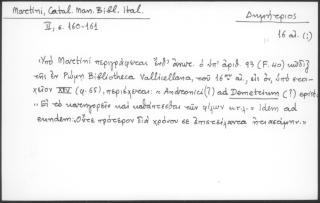 Martini, Catal. Man. Bibl. Ital.
II, σ. 160-161
Δημήτριος
16 αἰ. (;)
Ὑπὸ Martini περιγράφεται ὁ ὑπ' ἀριθ. 93 (F. 40) κῶδιξ
τῆς ἐν Ρώμῃ Bibliotheca Vallicellana, τοῦ 16ου αἰ, εἰς ὅν, ὑπὸ στοι-
χεῖον XIV (φ. 65), περιέχεται: « Andronici(?) ad Demetrium (?) epist.
« Εἰ τὸ κατηγορεῖν καὶ καθάπτεσθαι τῶν φίλων κ.τ.λ. » Idem ad
eundem: Οὔτε πρότερον διὰ χρόνου σε ἐπιστείλαντα ᾐτιασάμην. »